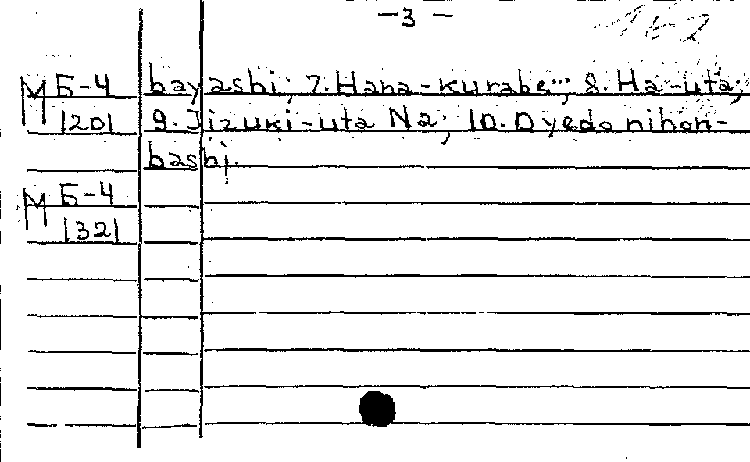 -3-
М Б-4 bayashi; 7. Hana-kurabe...; 8. Ha-uta;
1201 9. Jizuki-uta Na; 10. Oyedo nihon-
bashi.
М Б-4
1321